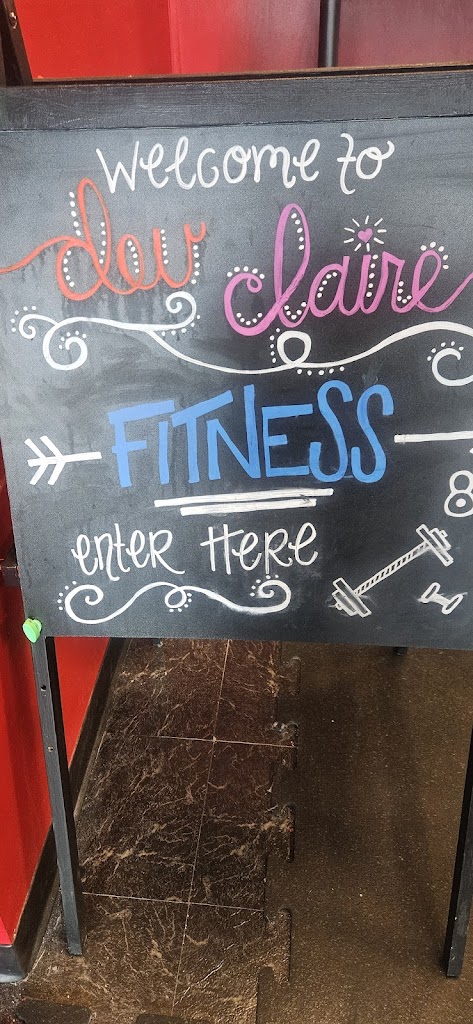 welcome to
dev claire
FITNESS
enter Here